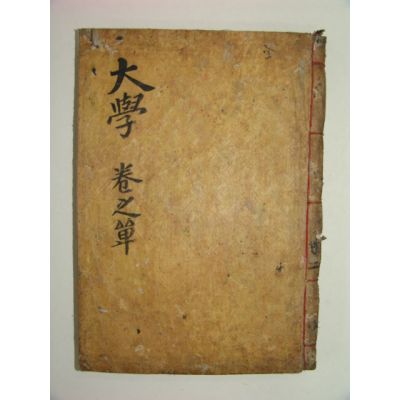 大學
卷之單